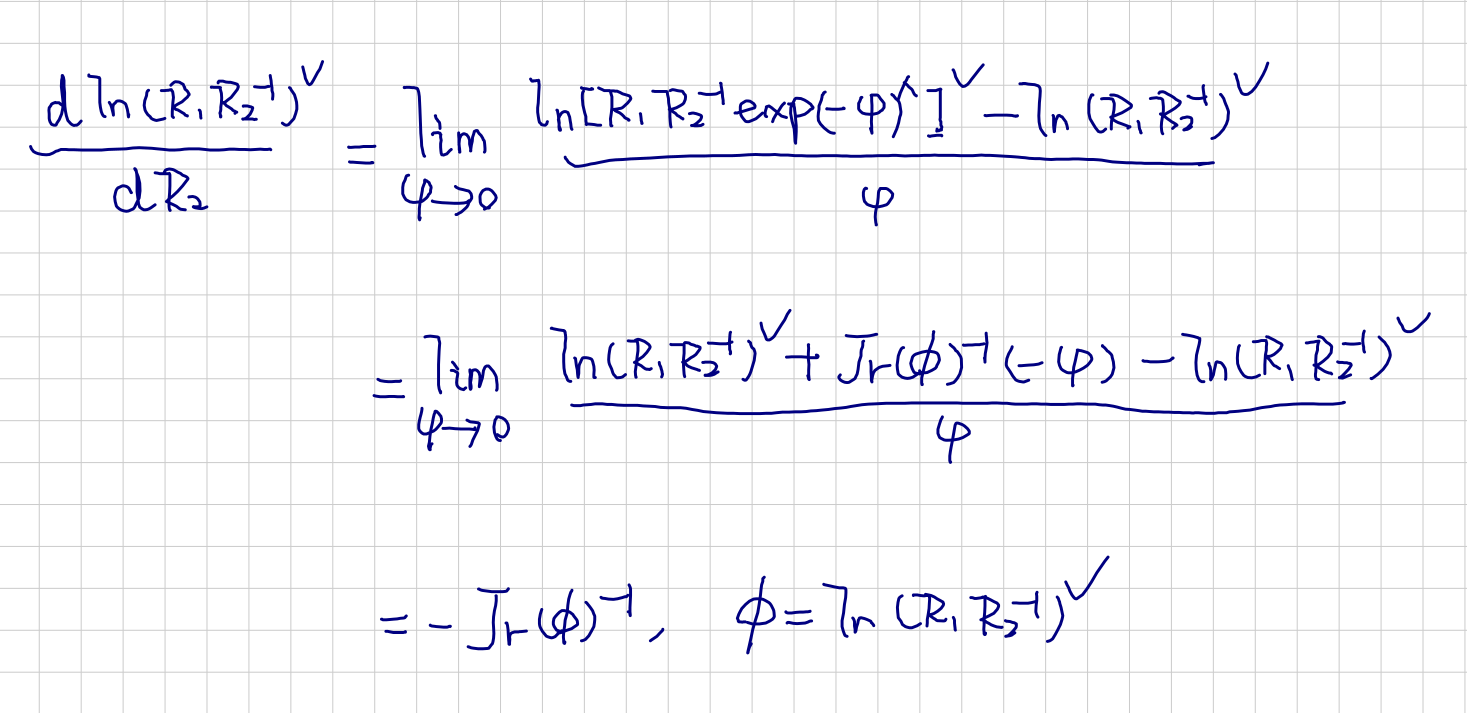 d ln(R₁R₂⁻¹)^∨ / dR₂ = lim_{φ→0} (ln[R₁R₂⁻¹exp(-φ)^∧]^∨ - ln(R₁R₂⁻¹)^∨) / φ
= lim_{φ→0} (ln(R₁R₂⁻¹)^∨ + Jr(ϕ)⁻¹(-φ) - ln(R₁R₂⁻¹)^∨) / φ
= -Jr(ϕ)⁻¹, ϕ = ln(R₁R₂⁻¹)^∨